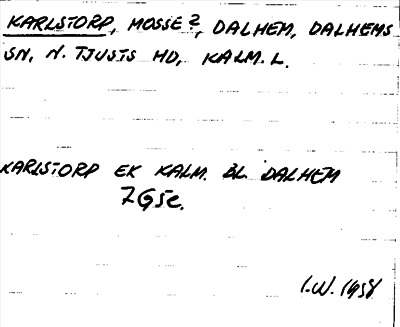 KARLSTORP, MOSSE?, DALHEM, DALHEMS
SN, N. TJUSTS HD, KALM. L.
KARLSTORP EK KALM. BL. DALHEM
7G5e.
I.W. 1958